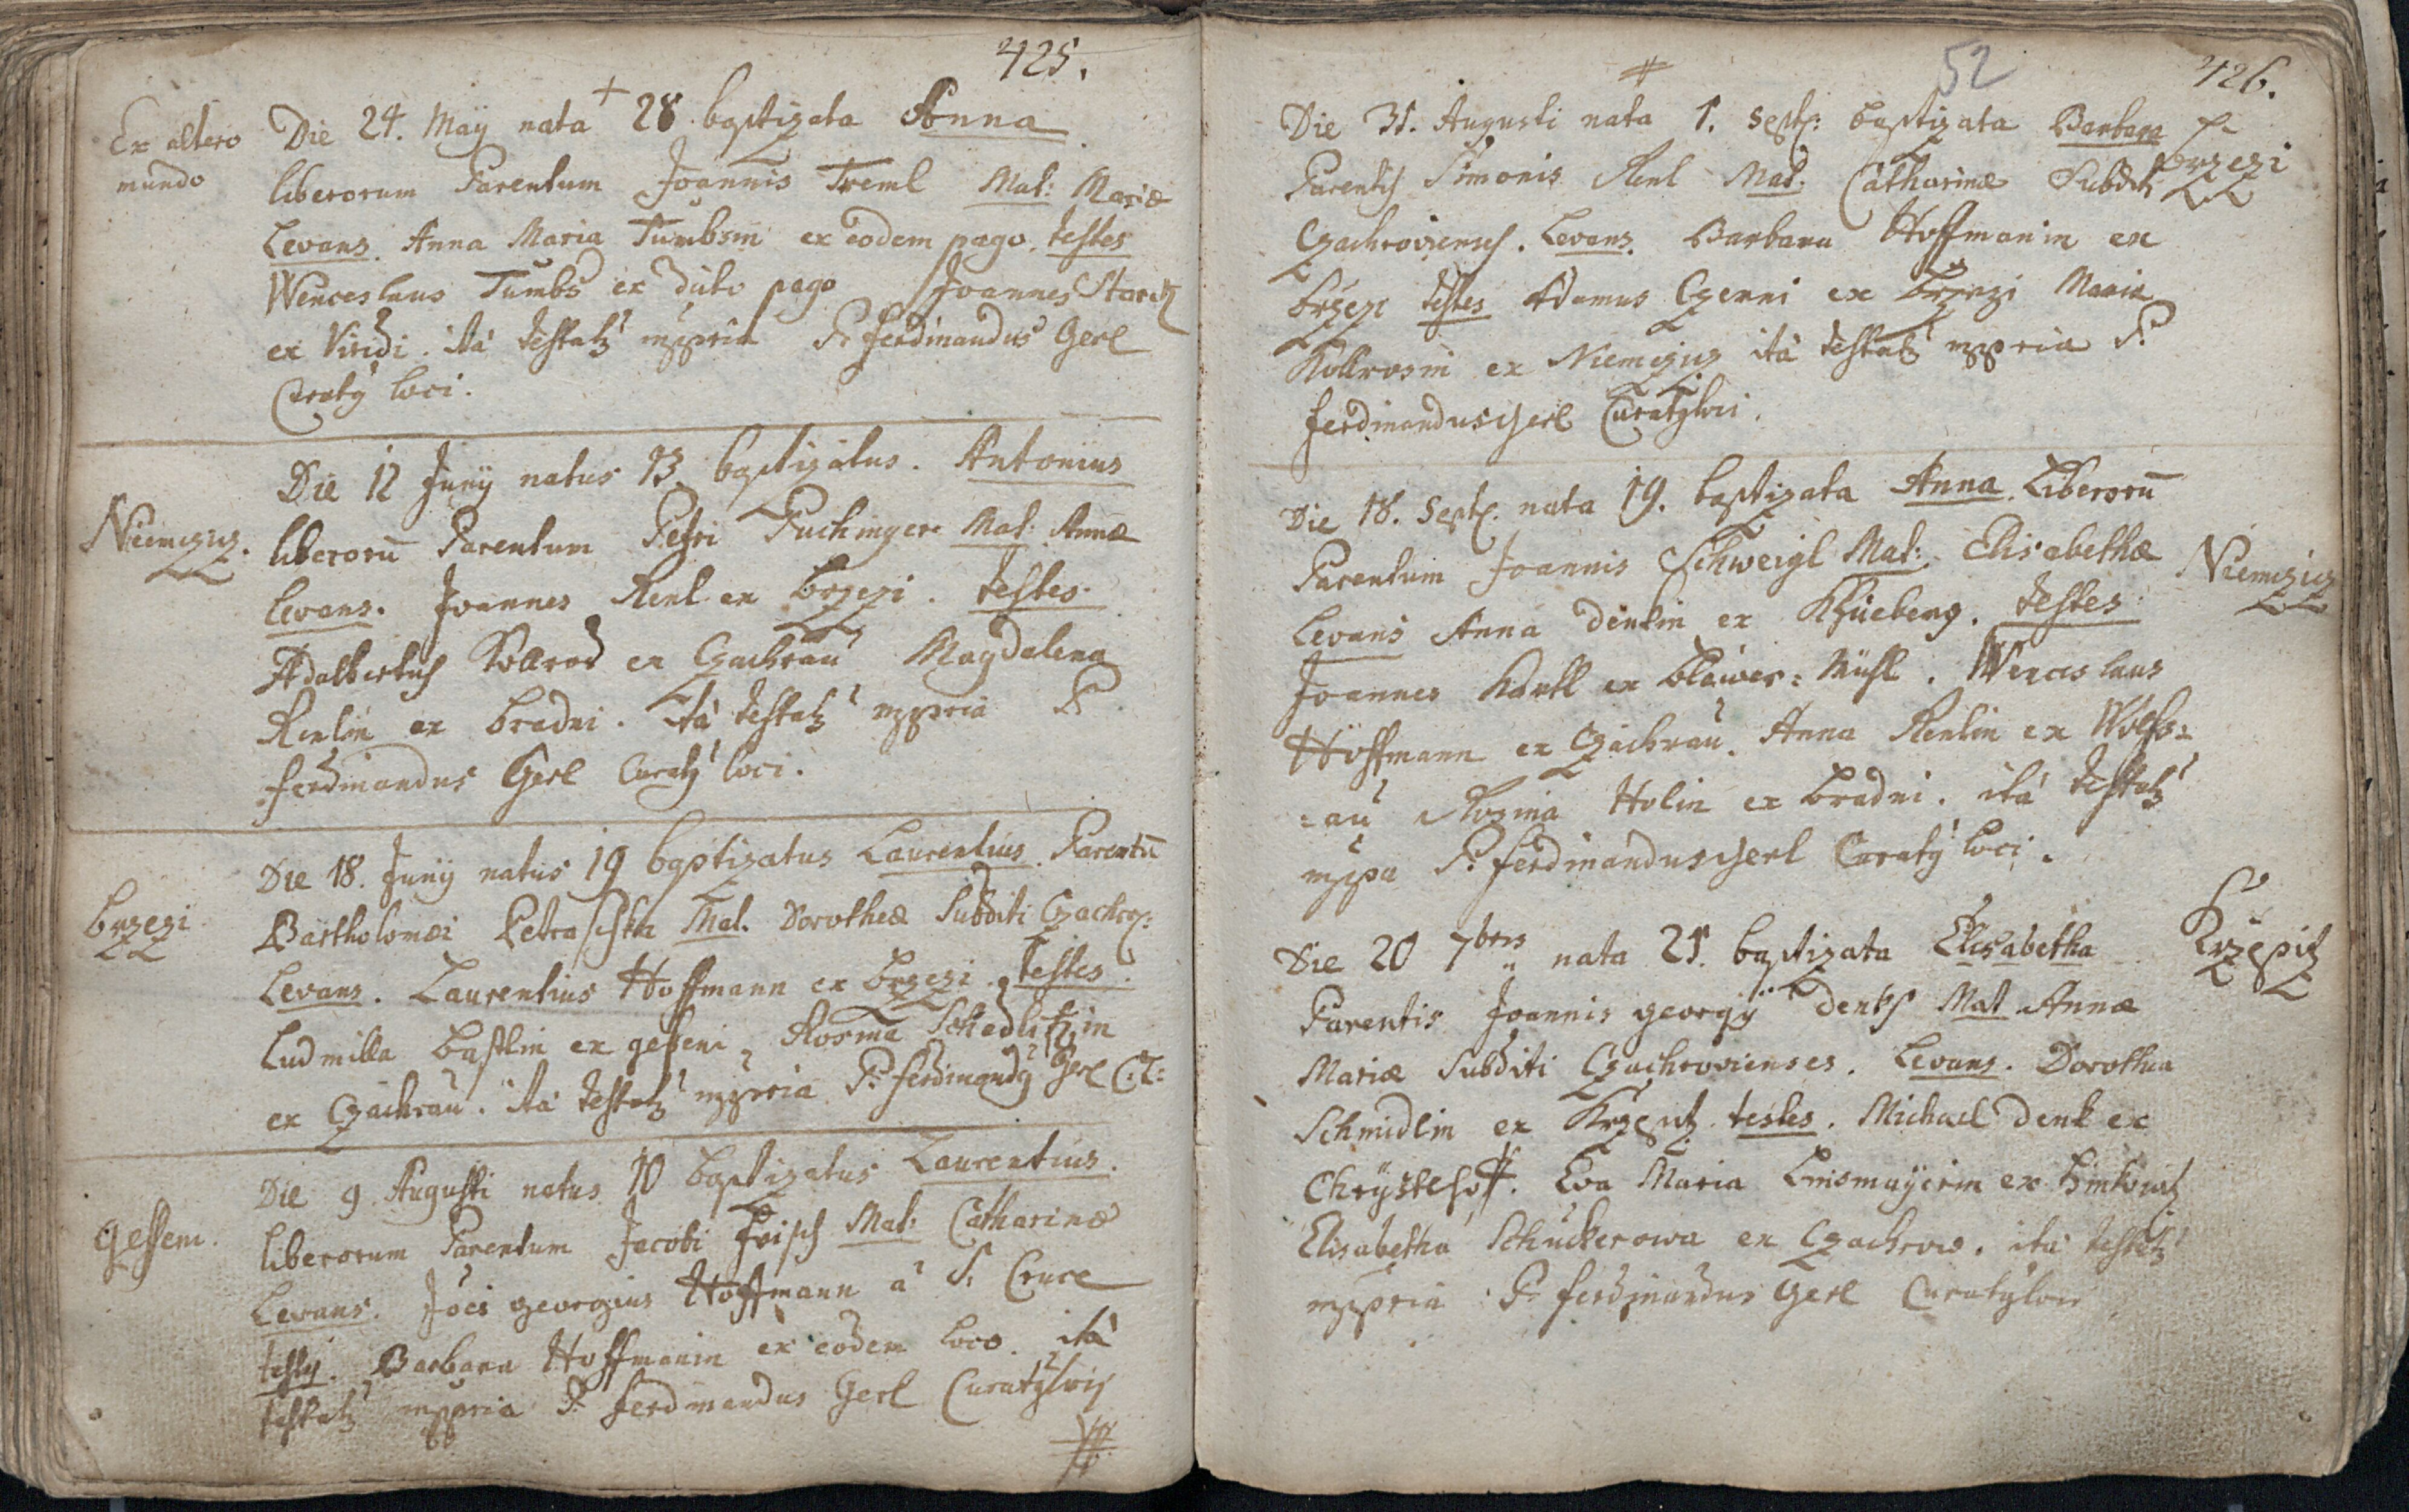 425.
Ex altero mundo
Die 24. Maÿ nata + 28 baptizata Anna
liberorum Parentum Joannis Treml Mat: Mariæ
Levans. Anna Maria Tumbsin ex eodem pago. testes
Wenceslaus Tumbs ex dicto pago Joannes Starck
ex Viridi. ita testatz mppria P. Ferdinandus Gerl
Curatq loci.
Niemczicz.
Die 12 Junÿ natus 13. baptizatus. Antonius
liberorū Parentum Petri Puchinger Mat: Annæ
Levans. Joannes Renl ex Brzezi. testes
Adalbertus Kollros ex Czachrau Magdalena
Renlin ex Bradni. ita testatz mppria P.
Ferdinandus Gerl Curatq loci.
Brzezi
Die 18. Junÿ natus 19 baptizatus Laurentius. Parentū
Bartholomæi Petraschka Mat. Dorotheæ Subditi Czachro:
Levans. Laurentius Hoffmann ex Brzezi. testes.
Ludmilla Bastlin ex Gesseni, Rosina Schedlitzin
ex Czachrau. ita testatz mppria P. Ferdinandq Gerl C:L:
Gesseni.
Die 9 Augusti natus 10 baptizatus Laurentius.
liberorum Parentum Jacobi Frisch Mat: Catharinæ
Levans. Joës Georgius Hoffmann a S. Cruce
testes. Barbara Hoffmanin ex eodem loco. ita
testatz mppria P. Ferdinandus Gerl Curatq loci
52
426.
Die 31. Augusti nata 1. Sept: baptizata Barbara
Brzezi
Parentis Simonis Renl Mat. Catharinæ Subditi
Czachroviensis. Levans. Barbara Hoffmanin ex
Brzezi testes Adamus Czerni ex Brzezi Maria
Kollrosin ex Niemczicz ita testatz mppria P.
Ferdinandus Gerl Curatq loci.
Die 18. Sept. nata 19. baptizata Anna. Liberorū
Parentum Joannis Schweigl Mat: Elisabethæ
Niemczicz
Levans Anna Denkin ex Khüeberg. testes
Joannes Hartl ex Mühl. Wenceslaus
Hoffmann ex Czachrau. Anna Renlin ex Wolfs=
=au Rosina Holin ex Bradni. ita testatz
mppa P. Ferdinandus Gerl Curatq loci.
Krzepitz
Die 20 7bris nata 21. baptizata Elisabetha
Parentis Joannis Georgÿ Denks Mat Annæ
Mariæ Subditi Czachrovienses. Levans. Dorothea
Schmidlin ex Krzepitz. testes. Michael Denk ex
Chrÿstlhoff. Eva Maria
Elisabetha Schuckerowa ex Czachrow. ita testatz
mppria P. Ferdinandus Gerl Curatq loci